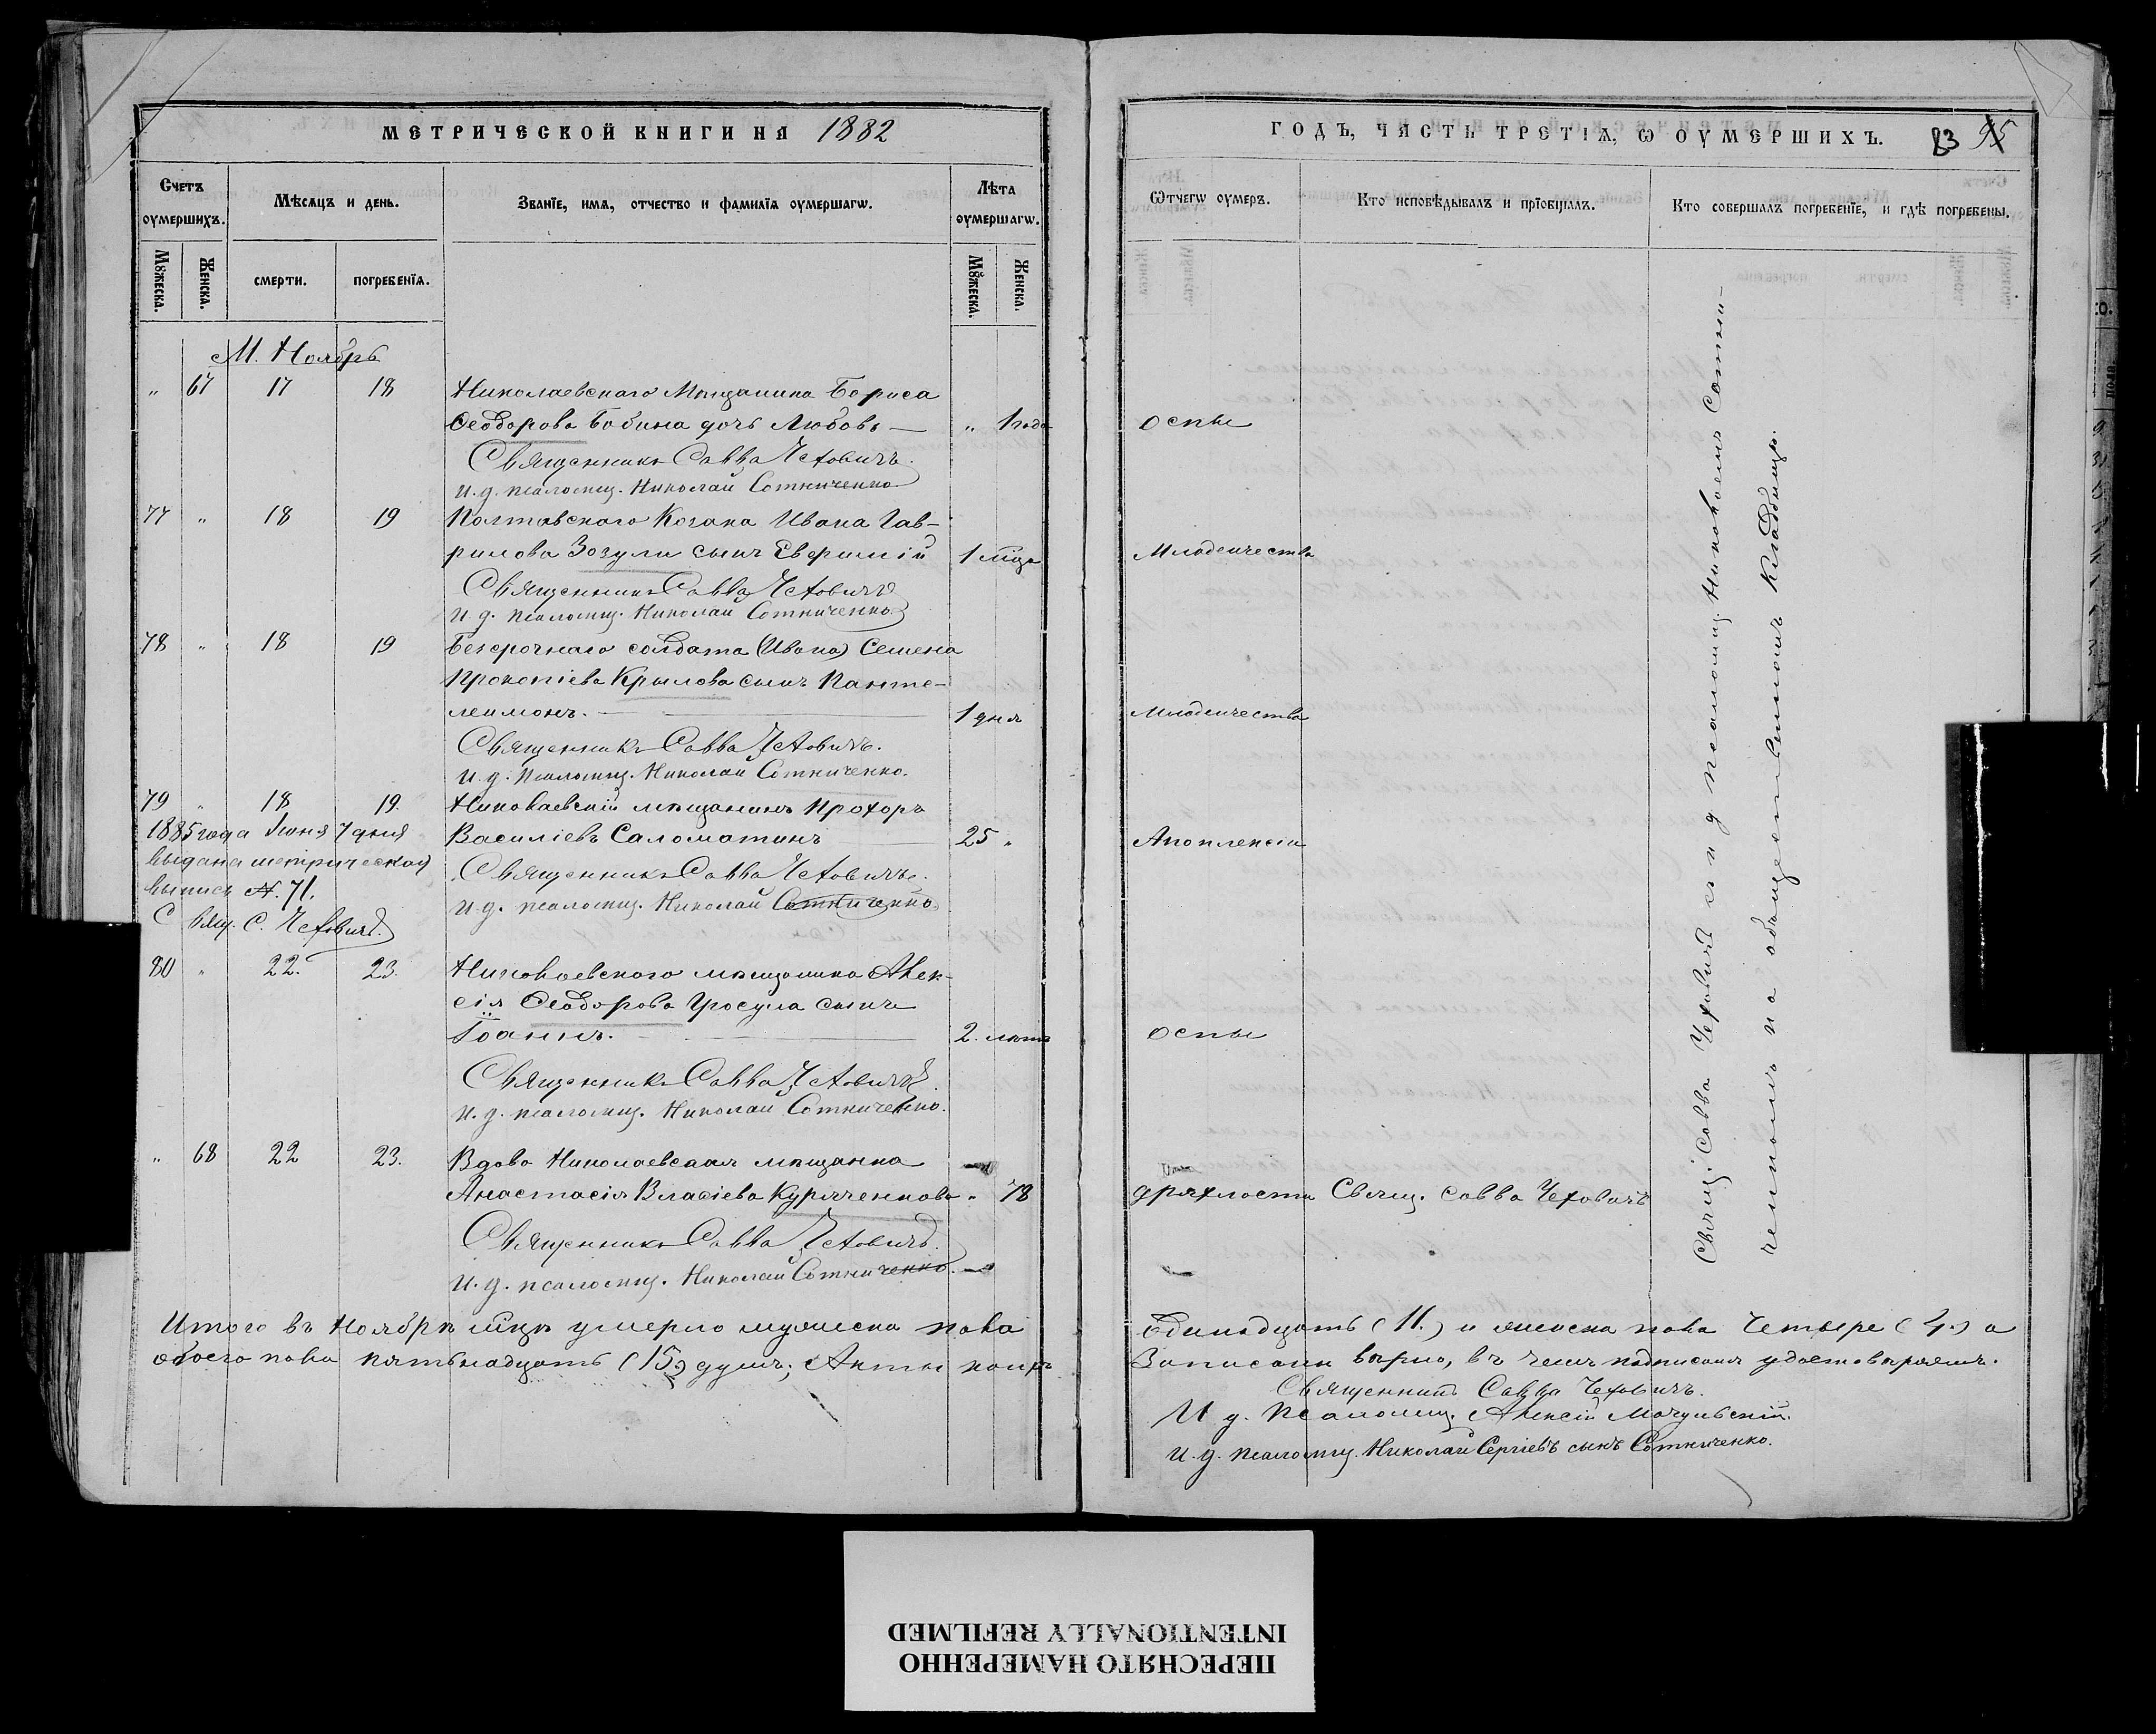 МЕТРИЧЕСКОЙ КНИГИ НА 1882
Счетъ оумершихъ.
Мѣсяцъ и день.
Званїе, имя, отчество и фамилїя оумершагѡ.
Лѣта оумершагѡ.
Мꙋжеска.
Женска.
смерти.
погребенїя.
Мꙋжеска.
Женска.
М. Ноябрь
„ 67 17 18 Николаевскаго Мѣщанина Бориса
Ѳеодорова Бобина дочь Любовь — „ 1 года
Священникъ Савва Чеховичъ.
И. д. псаломщ. Николай Сотниченко
77 „ 18 19 Полтавскаго Козака Ивана Гав-
рилова Зозули сынъ Евфимій 1 мца
Священникъ Савва Чеховичъ
И. д. псаломщ. Николай Сотниченко
78 „ 18 19 Безсрочнаго солдата (Ивана) Семена
Прокопіева Крылова сынъ Панте-
леимонъ. — 1 дня
Священникъ Савва Чеховичъ.
И. д. псаломщ. Николай Сотниченко.
79 „ 18 19. Николаевскій мѣщанинъ Прохоръ
Василіевъ Саломатинъ 25 „
Священникъ Савва Чеховичъ.
И. д. псаломщ. Николай Сотниченко.
1885 года Іюня 7 дня
выдана метрическая
выпись №. 71.
Свящ. С. Чеховичъ.
80 „ 22. 23. Николаевскаго мѣщанина Алек-
сія Ѳеодорова Сынъ
Іоаннъ. — 2. лѣтъ
Священникъ Савва Чеховичъ.
И. д. псаломщ. Николай Сотниченко.
„ 68 22 23. Вдова Николаевская мѣщанка
Анастасія Власіева Куряченкова „ 78
Священникъ Савва Чеховичъ.
И. д. псаломщ. Николай Сотниченко.
Итого въ Ноябрѣ мцѣ умерло мужеска пола
обоего пола пятьнадцать (15) душъ; Акты
ГОДЪ, ЧАСТЬ ТРЕТІЯ, Ѡ ОУМЕРШИХЪ. 83 95
Ѿчегѡ оумеръ.
Кто исповѣдывалъ и прїобщалъ.
Кто совершалъ погребенїе, и гдѣ погребены.
оспы
Младенчества
младенчества
Апоплексіи
оспы
дряхлости Свящ. Савва Чеховичъ
Свящ. Савва Чеховичъ съ и д псаломщ. Николаемъ Сотни-
ченкомъ на общественномъ кладбищѣ.
Одинадцать (11.) и женска пола Четыре (4.) а
Записаны вѣрно, въ чемъ подписомъ удостовѣряемъ.
Священникъ Савва Чеховичъ.
И д. Псаломщ. Алексій Мачульскій.
И. д. псаломщ. Николай Сергіевъ сынъ Сотниченко.
ПЕРЕСНЯТО НАМЕРЕННО
INTENTIONALLY REFILMED